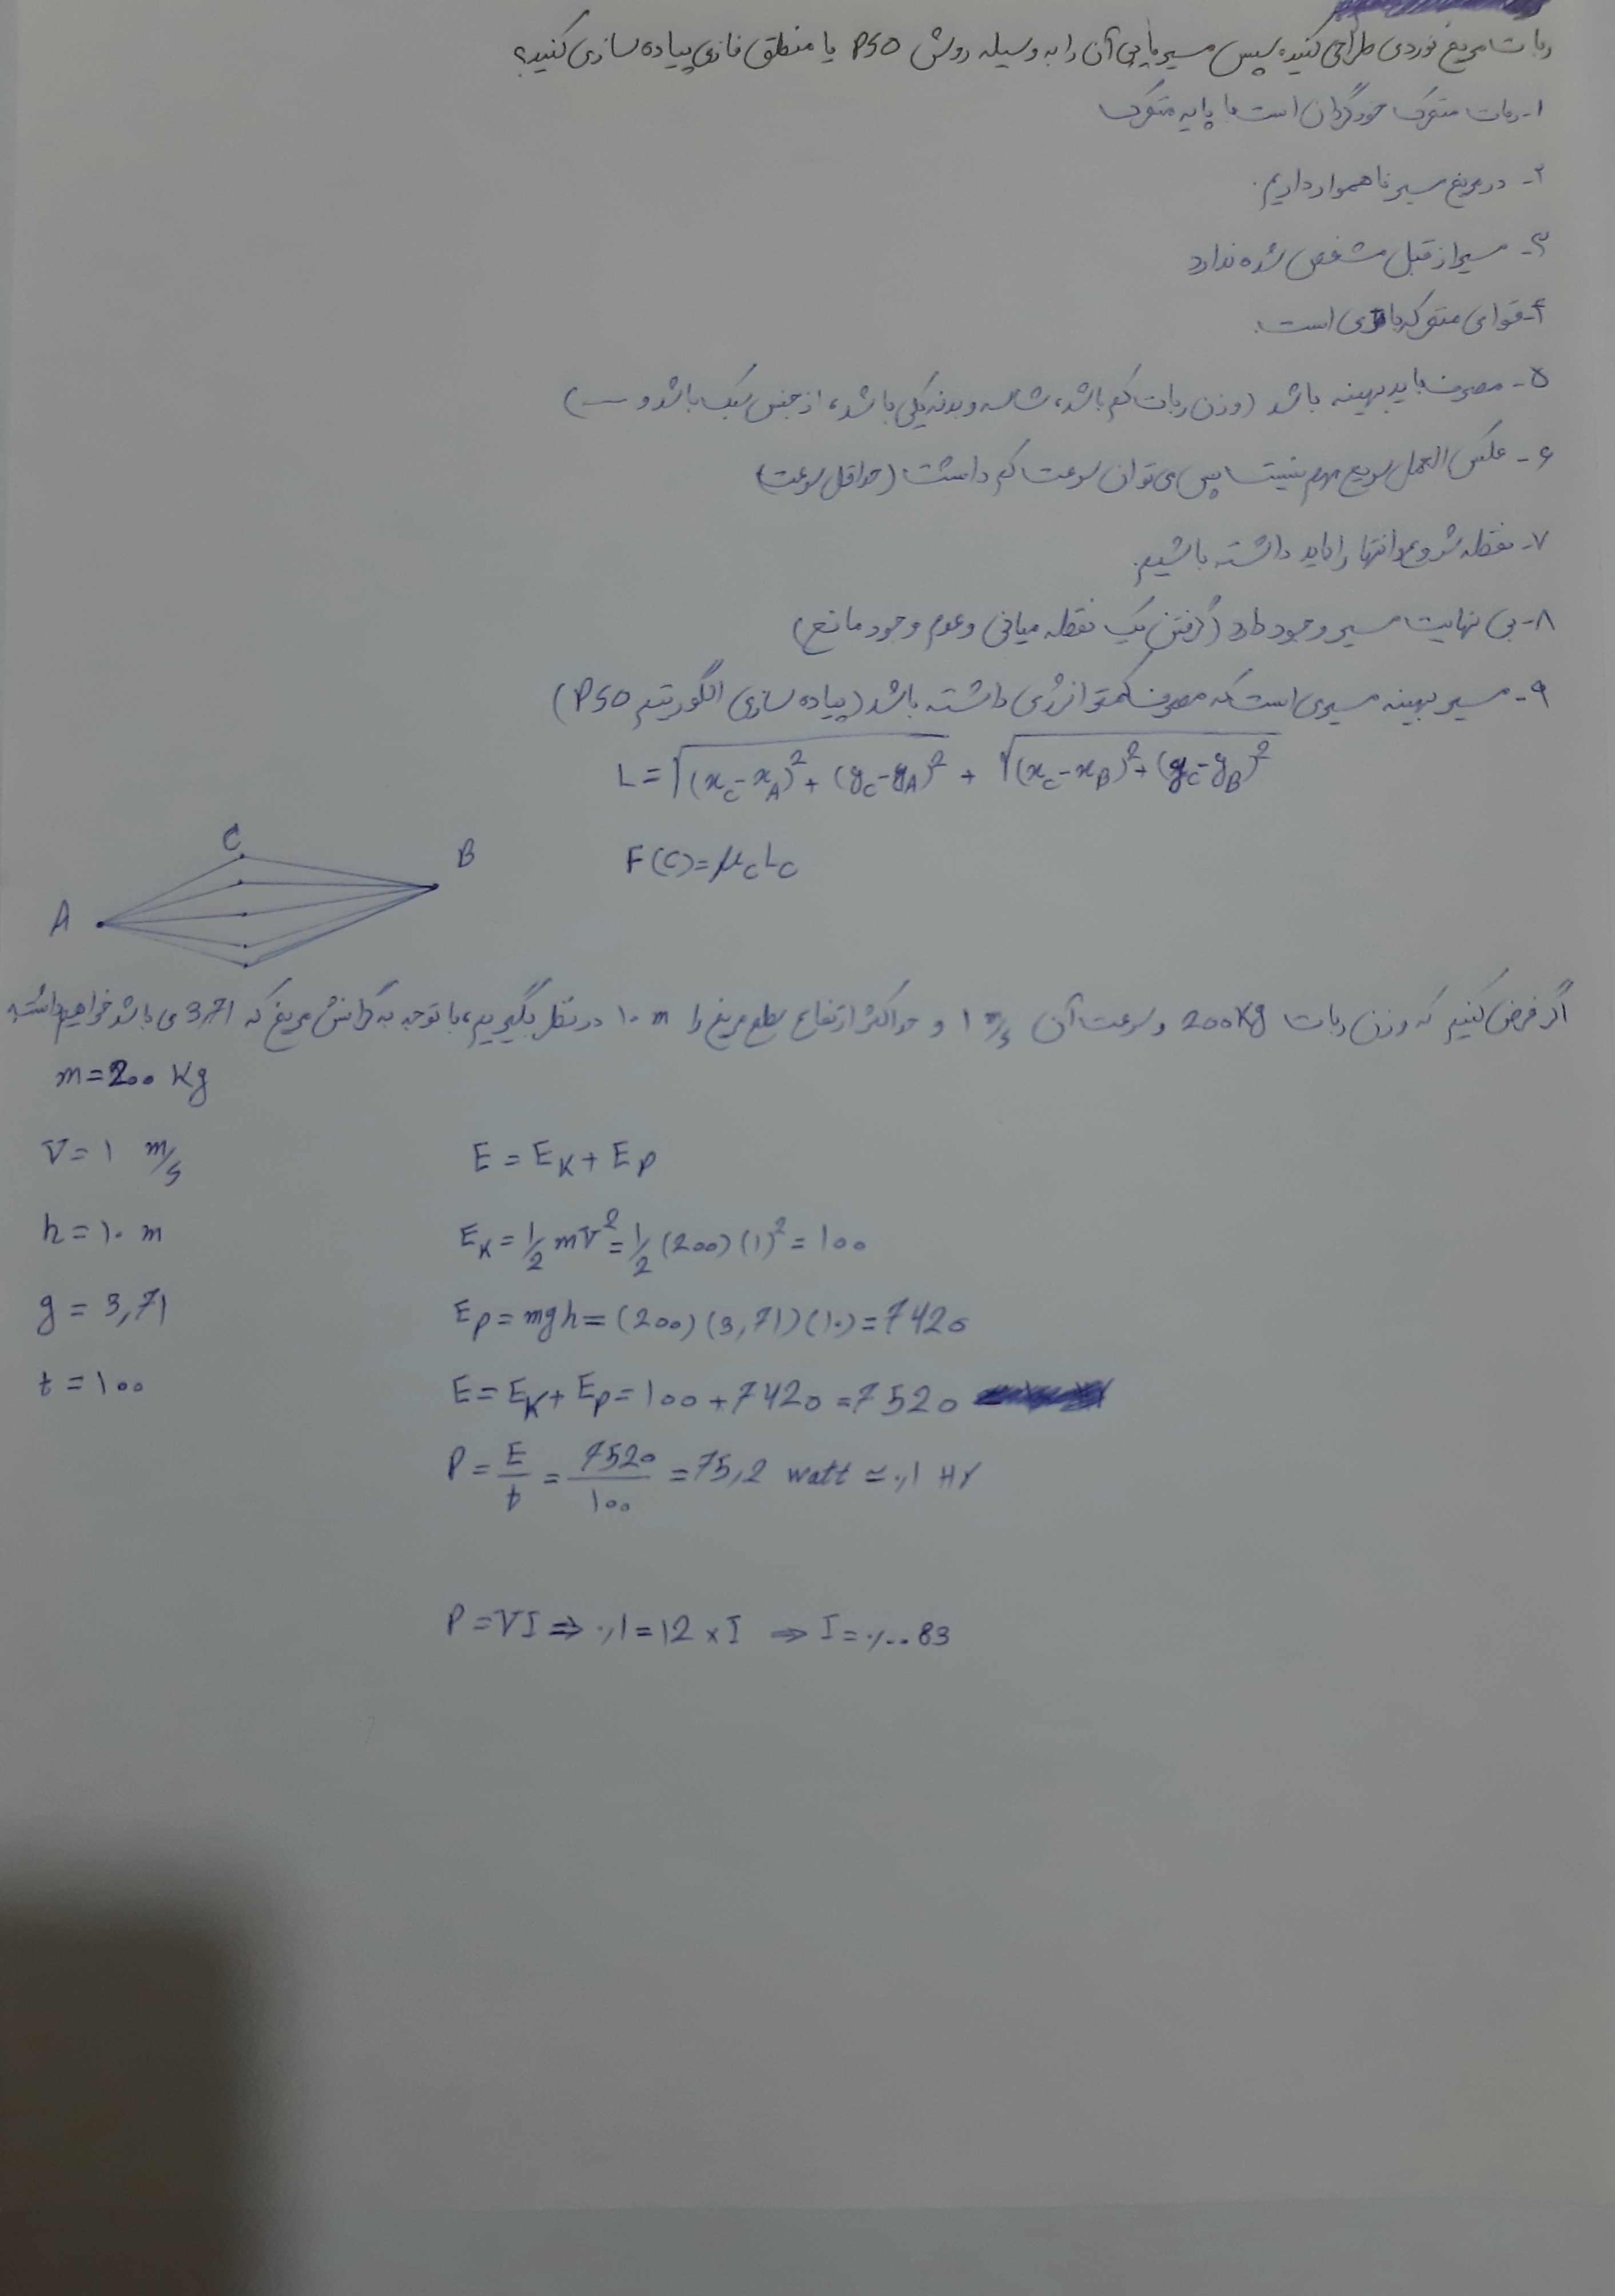 ربات مریخ نوردی طراحی کنید، سپس مسیریابی آن را به وسیله روش PSO یا منطق فازی پیاده سازی کنید؟
۱- ربات متحرک خودگردان است با پایه متحرک
۲- در مریخ مسیر ناهموار داریم.
۳- مسیر از قبل مشخص شده ندارد
۴- قوای متحرکه باتری است.
۵- مصرف باید بهینه باشد (وزن ربات کم باشد، شاسی و بدنه یکی باشد، از جنس سبک باشد و ...)
۶- عکس العمل سریع مهم نیست پس می توان سرعت کم داشت (حداقل سرعت)
۷- نقطه شروع و انتها را باید داشته باشیم.
۸- بی نهایت مسیر وجود دارد (گرفتن یک نقطه میانی و عدم وجود مانع)
۹- مسیر بهینه مسیری است که مصرف کمتر انرژی داشته باشد (پیاده سازی الگوریتم PSO)
L = √((x_C - x_A)² + (y_C - y_A)²) + √((x_C - x_B)² + (y_C - y_B)²)
F(C) = μ_C L_C
C
B
A
اگر فرض کنیم که وزن ربات 200 Kg و سرعت آن ۱ m/s و حداکثر ارتفاع سطح مریخ را ۱۰ m در نظر بگیریم، با توجه به گرانش مریخ که 3,71 می باشد خواهیم داشت:
m = 200 Kg
V = ۱ m/s
E = E_K + E_P
h = ۱۰ m
E_K = 1/2 mV² = 1/2 (200) (1)² = ۱۰۰
g = 3,71
E_P = mgh = (200) (3,71) (۱۰) = 7420
t = ۱۰۰
E = E_K + E_P = ۱۰۰ + 7420 = 7520
P = E/t = 7520/۱۰۰ = 75,2 watt ≃ ۰,۱
P = VI ⇒ ۰,۱ = 12 × I ⇒ I = ۰,۰۰83